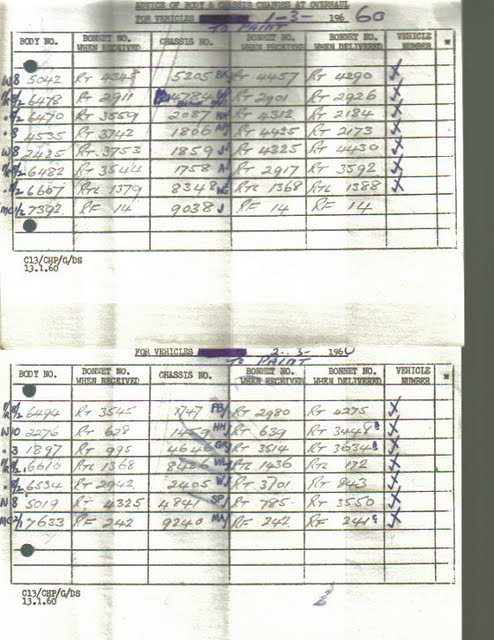 ADVICE OF BODY & CHASSIS CHANGES AT OVERHAUL
FOR VEHICLES 1-3- 1960
TO PAINT
BODY NO. BONNET NO. WHEN RECEIVED CHASSIS NO. BONNET NO. WHEN RECEIVED BONNET NO. WHEN DELIVERED VEHICLE NUMBER
W8 5042 RT 4348 5205 RT 4457 RT 4290 X
6478 RT 2911 4784 RT 2901 RT 2926 X
6470 RT 3559 2087 RT 4312 RT 2184 X
8 4535 RT 3742 1806 RT 4425 RT 2173 X
W8 2425 RT 3753 1859 J RT 4225 RT 4430 X
6482 RT 3544 1758 RT 2917 RT 3592 X
6607 RTL 1379 8348 RTL 1368 RTL 1388 X
7392 RF 14 9038 J RF 14 RF 14
C13/CHP/G/DS
13.1.60
FOR VEHICLES 2-3- 196
TO PAINT
BODY NO. BONNET NO. WHEN RECEIVED CHASSIS NO. BONNET NO. WHEN RECEIVED BONNET NO. WHEN DELIVERED VEHICLE NUMBER
6494 RT 3545 1747 RT 2980 RT 4275 X
W10 2276 RT 628 1459 HH RT 639 RT 3448 B X
3 1897 RT 995 4646 GR RT 3514 RT 3634 B X
6610 RTL 1368 8426 RTL 1436 RTL 172 X
6534 RT 2942 2405 RT 3701 RT 843 X
5019 RT 4325 4847 SP RT 785 RT 3550 X
7633 RF 242 9240 MA RF 242 RF 241 X
C13/CHP/G/DS
13.1.60